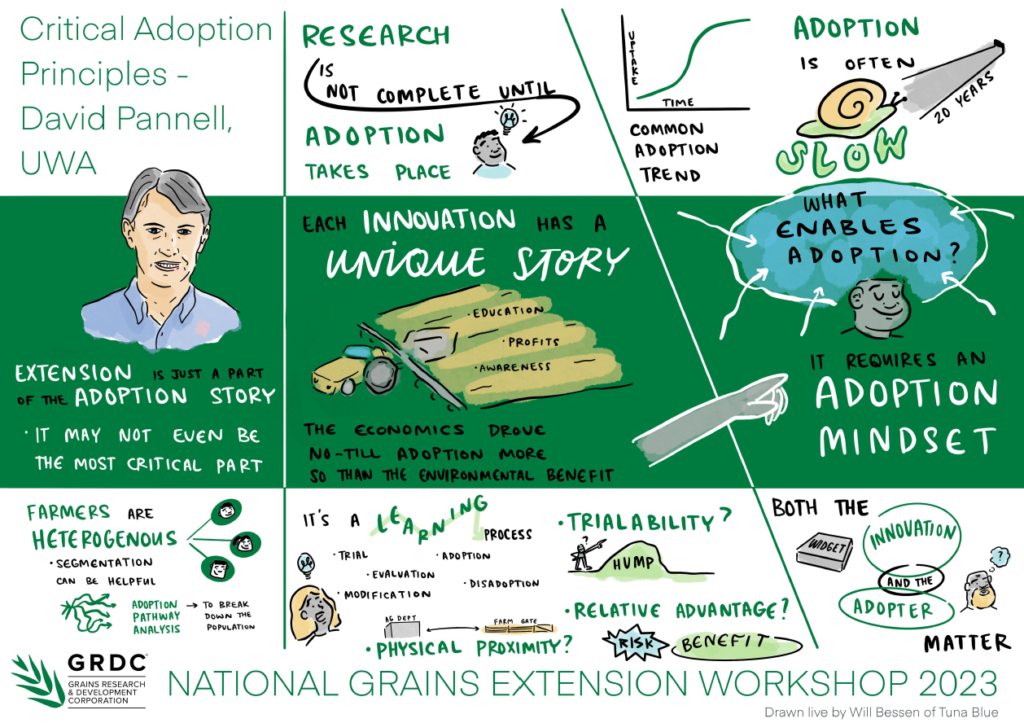 Critical Adoption
Principles -
David Pannell,
UWA
RESEARCH
IS
NOT COMPLETE UNTIL
ADOPTION
TAKES PLACE
UPTAKE
TIME
COMMON
ADOPTION
TREND
ADOPTION
IS OFTEN
20 YEARS
SLOW
EXTENSION IS JUST A PART
OF THE ADOPTION STORY
· IT MAY NOT EVEN BE
THE MOST CRITICAL PART
EACH INNOVATION HAS A
UNIQUE STORY
· EDUCATION
· PROFITS
· AWARENESS
THE ECONOMICS DROVE
NO-TILL ADOPTION MORE
SO THAN THE ENVIRONMENTAL BENEFIT
WHAT
ENABLES
ADOPTION?
IT REQUIRES AN
ADOPTION
MINDSET
FARMERS ARE
HETEROGENOUS
· SEGMENTATION
CAN BE HELPFUL
ADOPTION
PATHWAY
ANALYSIS
→ TO BREAK
DOWN THE
POPULATION
IT'S A LEARNING
PROCESS
· TRIAL
· ADOPTION
· EVALUATION
· DISADOPTION
· MODIFICATION
AG DEPT
FARM GATE
· PHYSICAL PROXIMITY?
· TRIALABILITY?
?
HUMP
· RELATIVE ADVANTAGE?
RISK
BENEFIT
BOTH THE
WIDGET
INNOVATION
AND THE
ADOPTER
?
MATTER
GRDC
GRAINS RESEARCH
& DEVELOPMENT
CORPORATION
NATIONAL GRAINS EXTENSION WORKSHOP 2023
Drawn live by Will Bessen of Tuna Blue